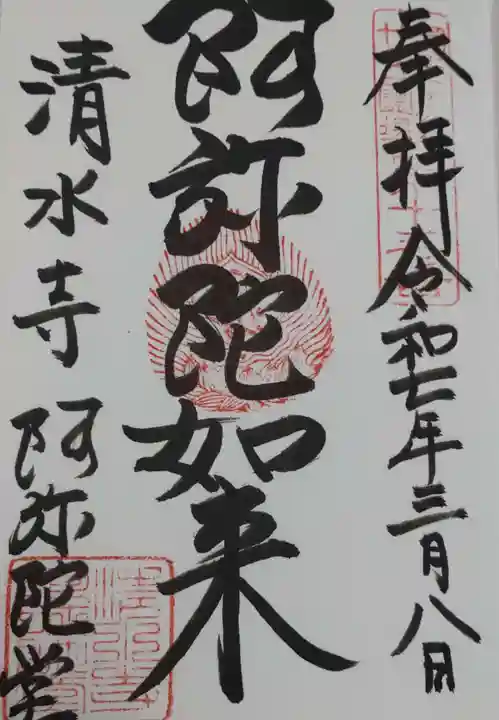 奉拝令和七年三月八日
阿弥陀如来
清水寺 阿弥陀堂